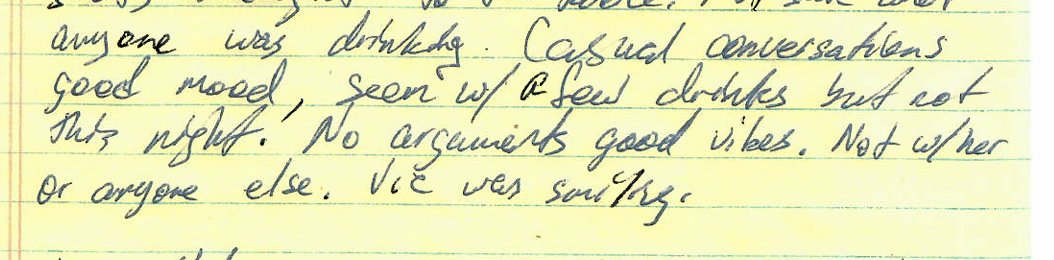 anyone was drinking. Casual conversations
good mood, seen w/ a few drinks but not
this night. No arguments good vibes. Not w/her
or anyone else. Vic was smiling.